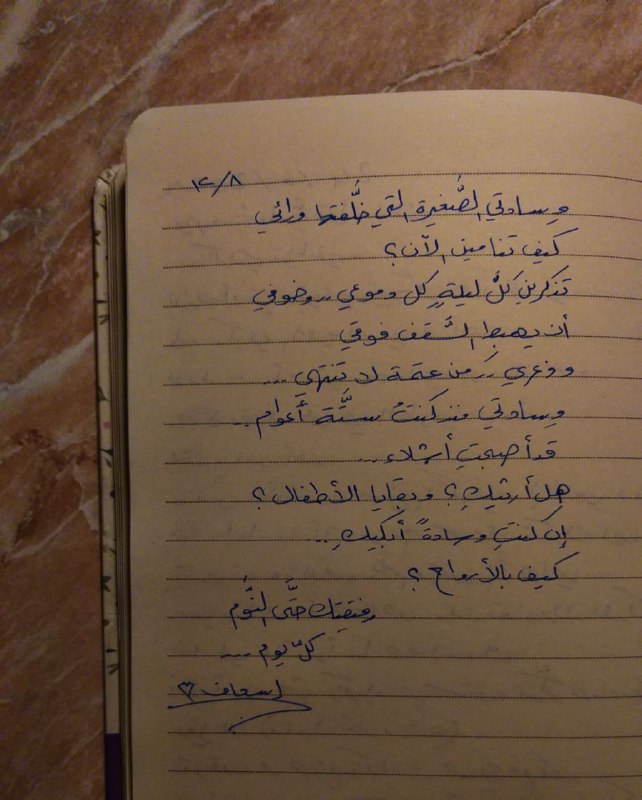 ١٢/٨
وسادتي الصُّغيرة التي خلَّفتها ورائي
كيف تنامين الآن؟
تذكرين كلَّ ليلةٍ كل دموعي .. وخوفي
أن يهبط السَّقف فوقي
وذعري .. من عتمة لا تنتهي ...
وسادتي منذ كنتُ ستَّة أعوام ..
قد أصبحتِ أشلاء ..
هل أرثيكِ؟ وبقايا الأطفال؟
إن كنتِ وسادةً أبكيكِ ..
كيف بالأرواح؟
رفيقتك حتَّى النَّوم
كلّ يوم ...
إسعاف